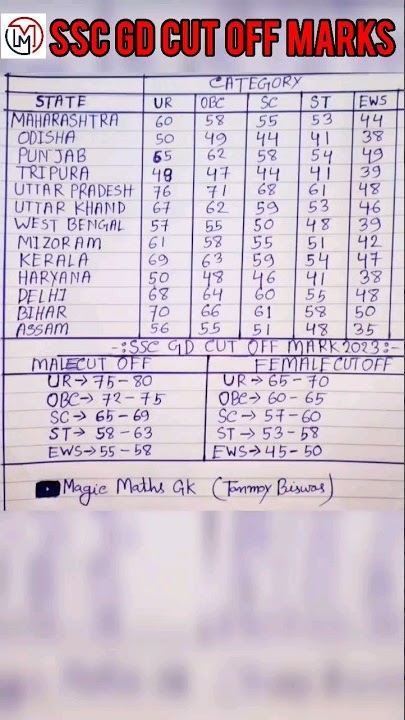 LM SSC GD CUT OFF MARKS
CATEGORY
STATE UR OBC SC ST EWS
MAHARASHTRA 60 58 55 53 44
ODISHA 50 49 44 41 38
PUNJAB 65 62 58 54 49
TRIPURA 48 47 44 41 39
UTTAR PRADESH 76 71 68 61 48
UTTAR KHAND 67 62 59 53 46
WEST BENGAL 57 55 50 48 39
MIZORAM 61 58 55 51 42
KERALA 69 63 59 54 47
HARYANA 50 48 46 41 38
DELHI 68 64 60 55 48
BIHAR 70 66 61 58 50
ASSAM 56 55 51 48 35
-:SSC GD CUT OFF MARK 2023:-
MALE CUT OFF FEMALE CUT OFF
UR→75-80 UR→65-70
OBC→72-75 OBC→60-65
SC→65-69 SC→57-60
ST→58-63 ST→53-58
EWS→55-58 EWS→45-50
Magic Maths GK (Tanmoy Biswas)